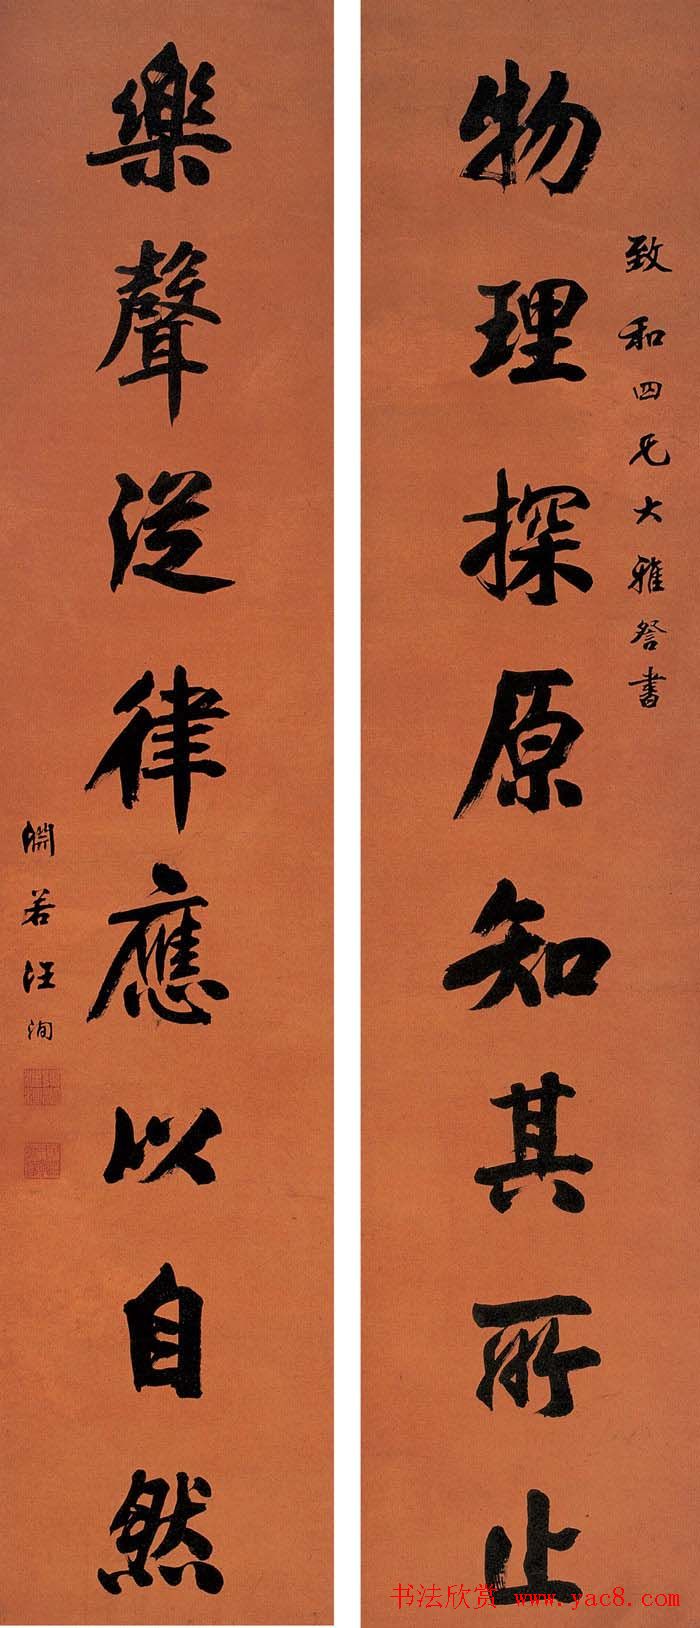 致和四兄大雅詧書
物理探原知其所止
樂聲從律應以自然
淵若汪洵
书法欣赏 www.yac8.com